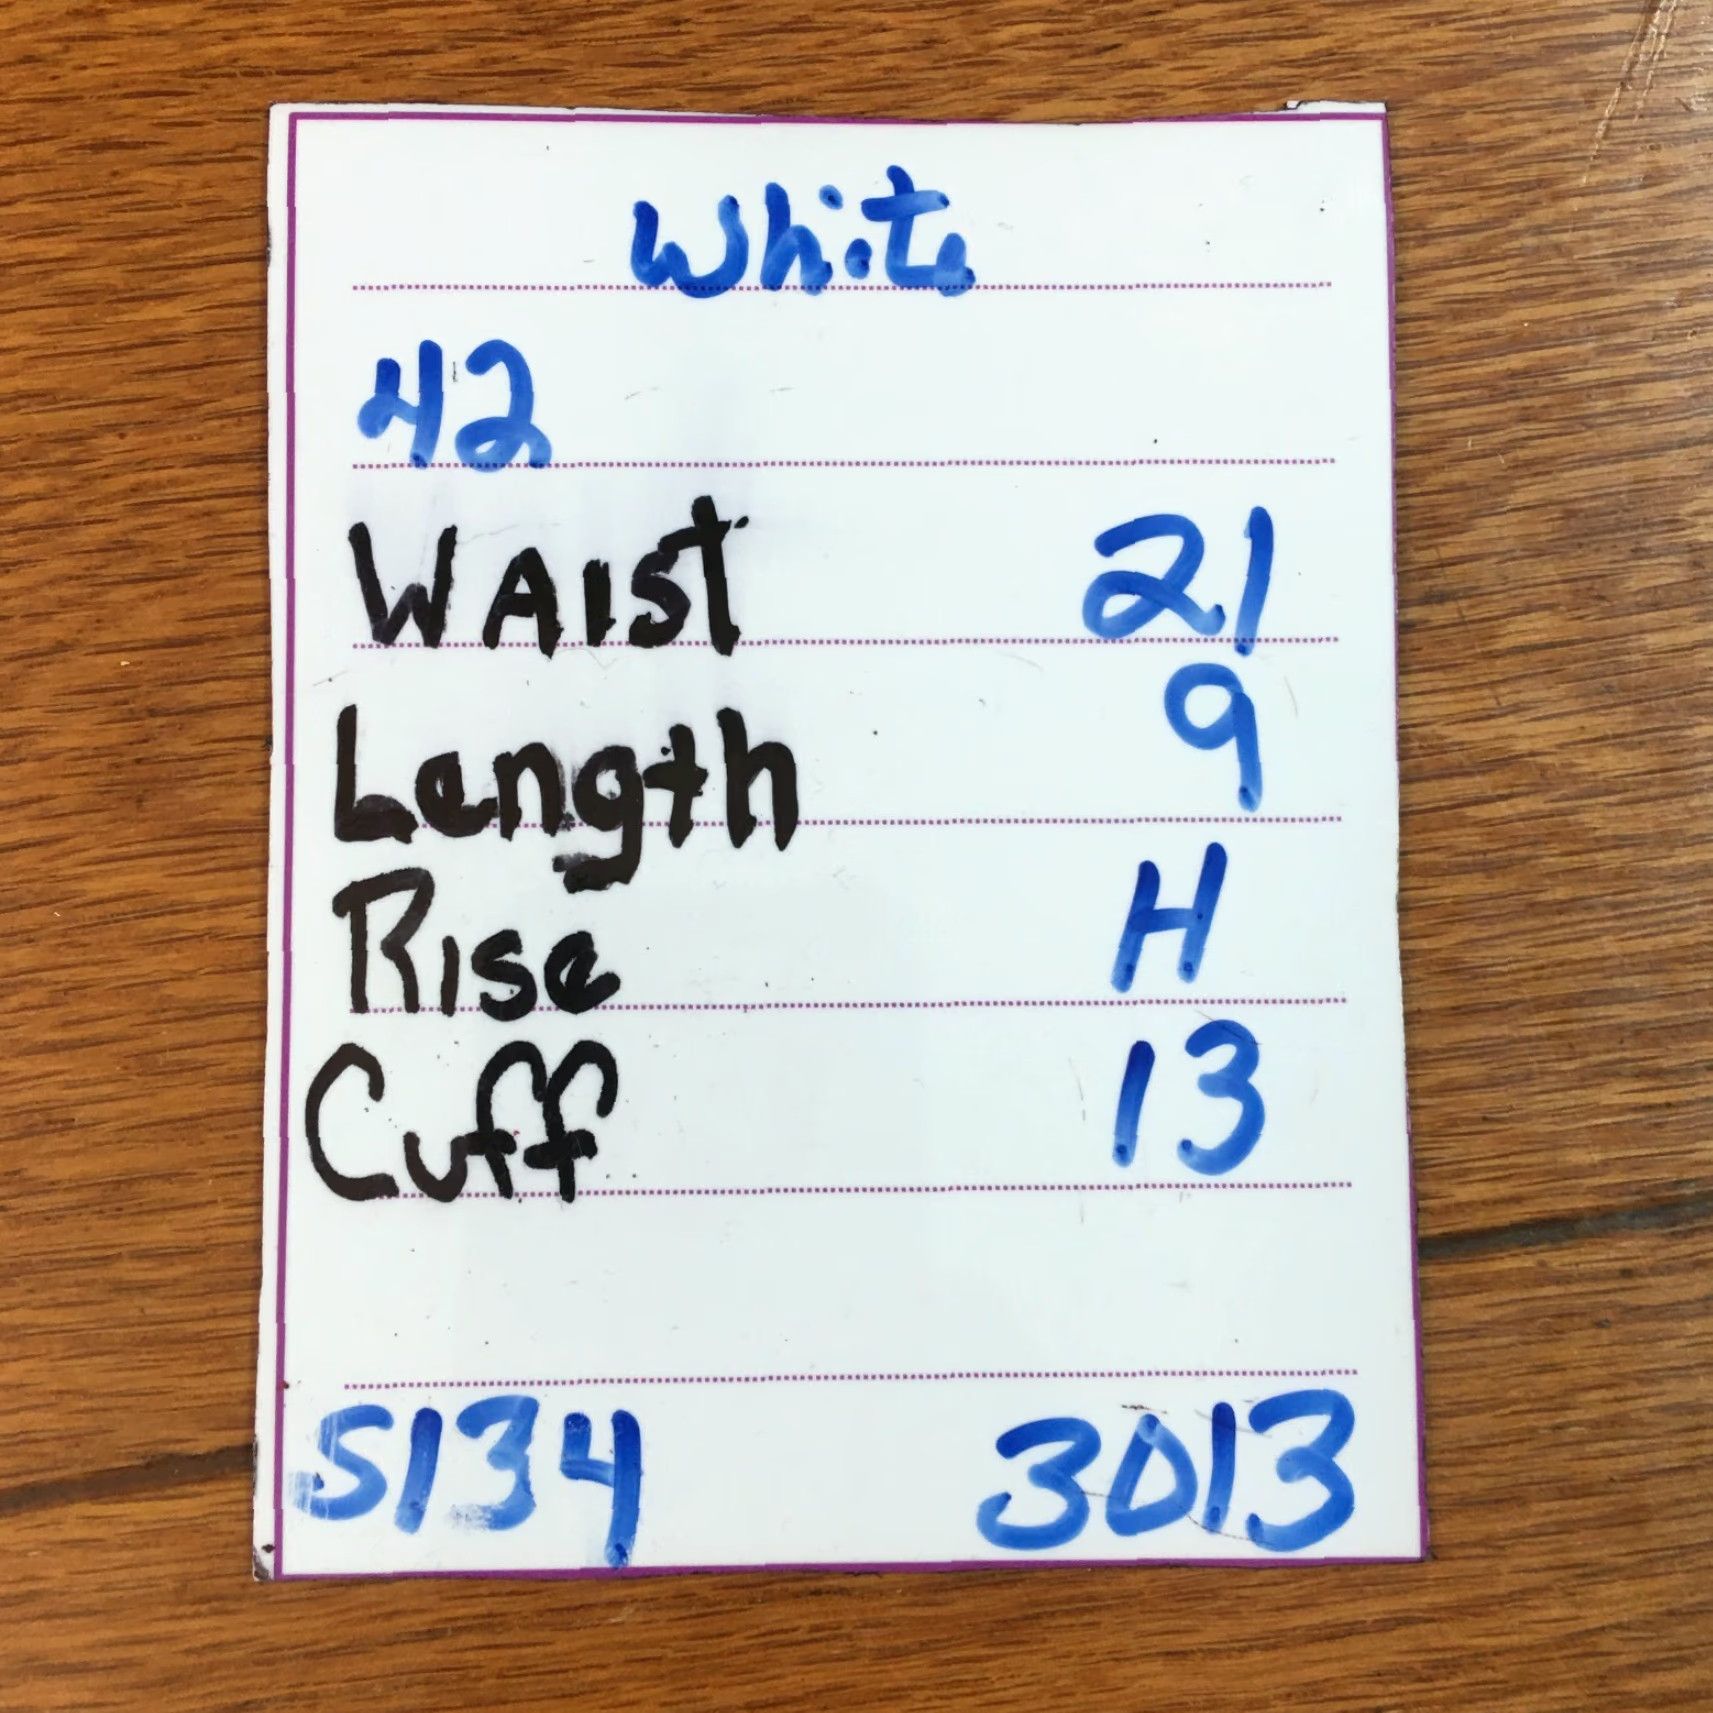 White
42
WAIST 21
Length 9
Rise H
Cuff 13
5134 3013